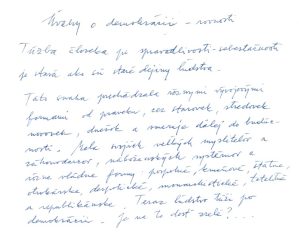 Úvahy o demokrácii – rovnosti
Túžba človeka po spravodlivosti – sebestačnosti
je stará ako sú staré dejiny ľudstva.
Táto snaha prechádzala rôznymi vývojovými
formami od praveku, cez starovek, stredovek
novovek, dnešok a smeruje ďalej do budúc-
nosti. Mala svojich veľkých mysliteľov a
zákonodarcov, náboženských systémov a
rôzne vládne formy, kmeňové, štátne,
otrokárske, despotické, monarchistické, totalitné
a republikánske. Teraz ľudstvo túži po
demokracii. Je to dosť zrelé? ...